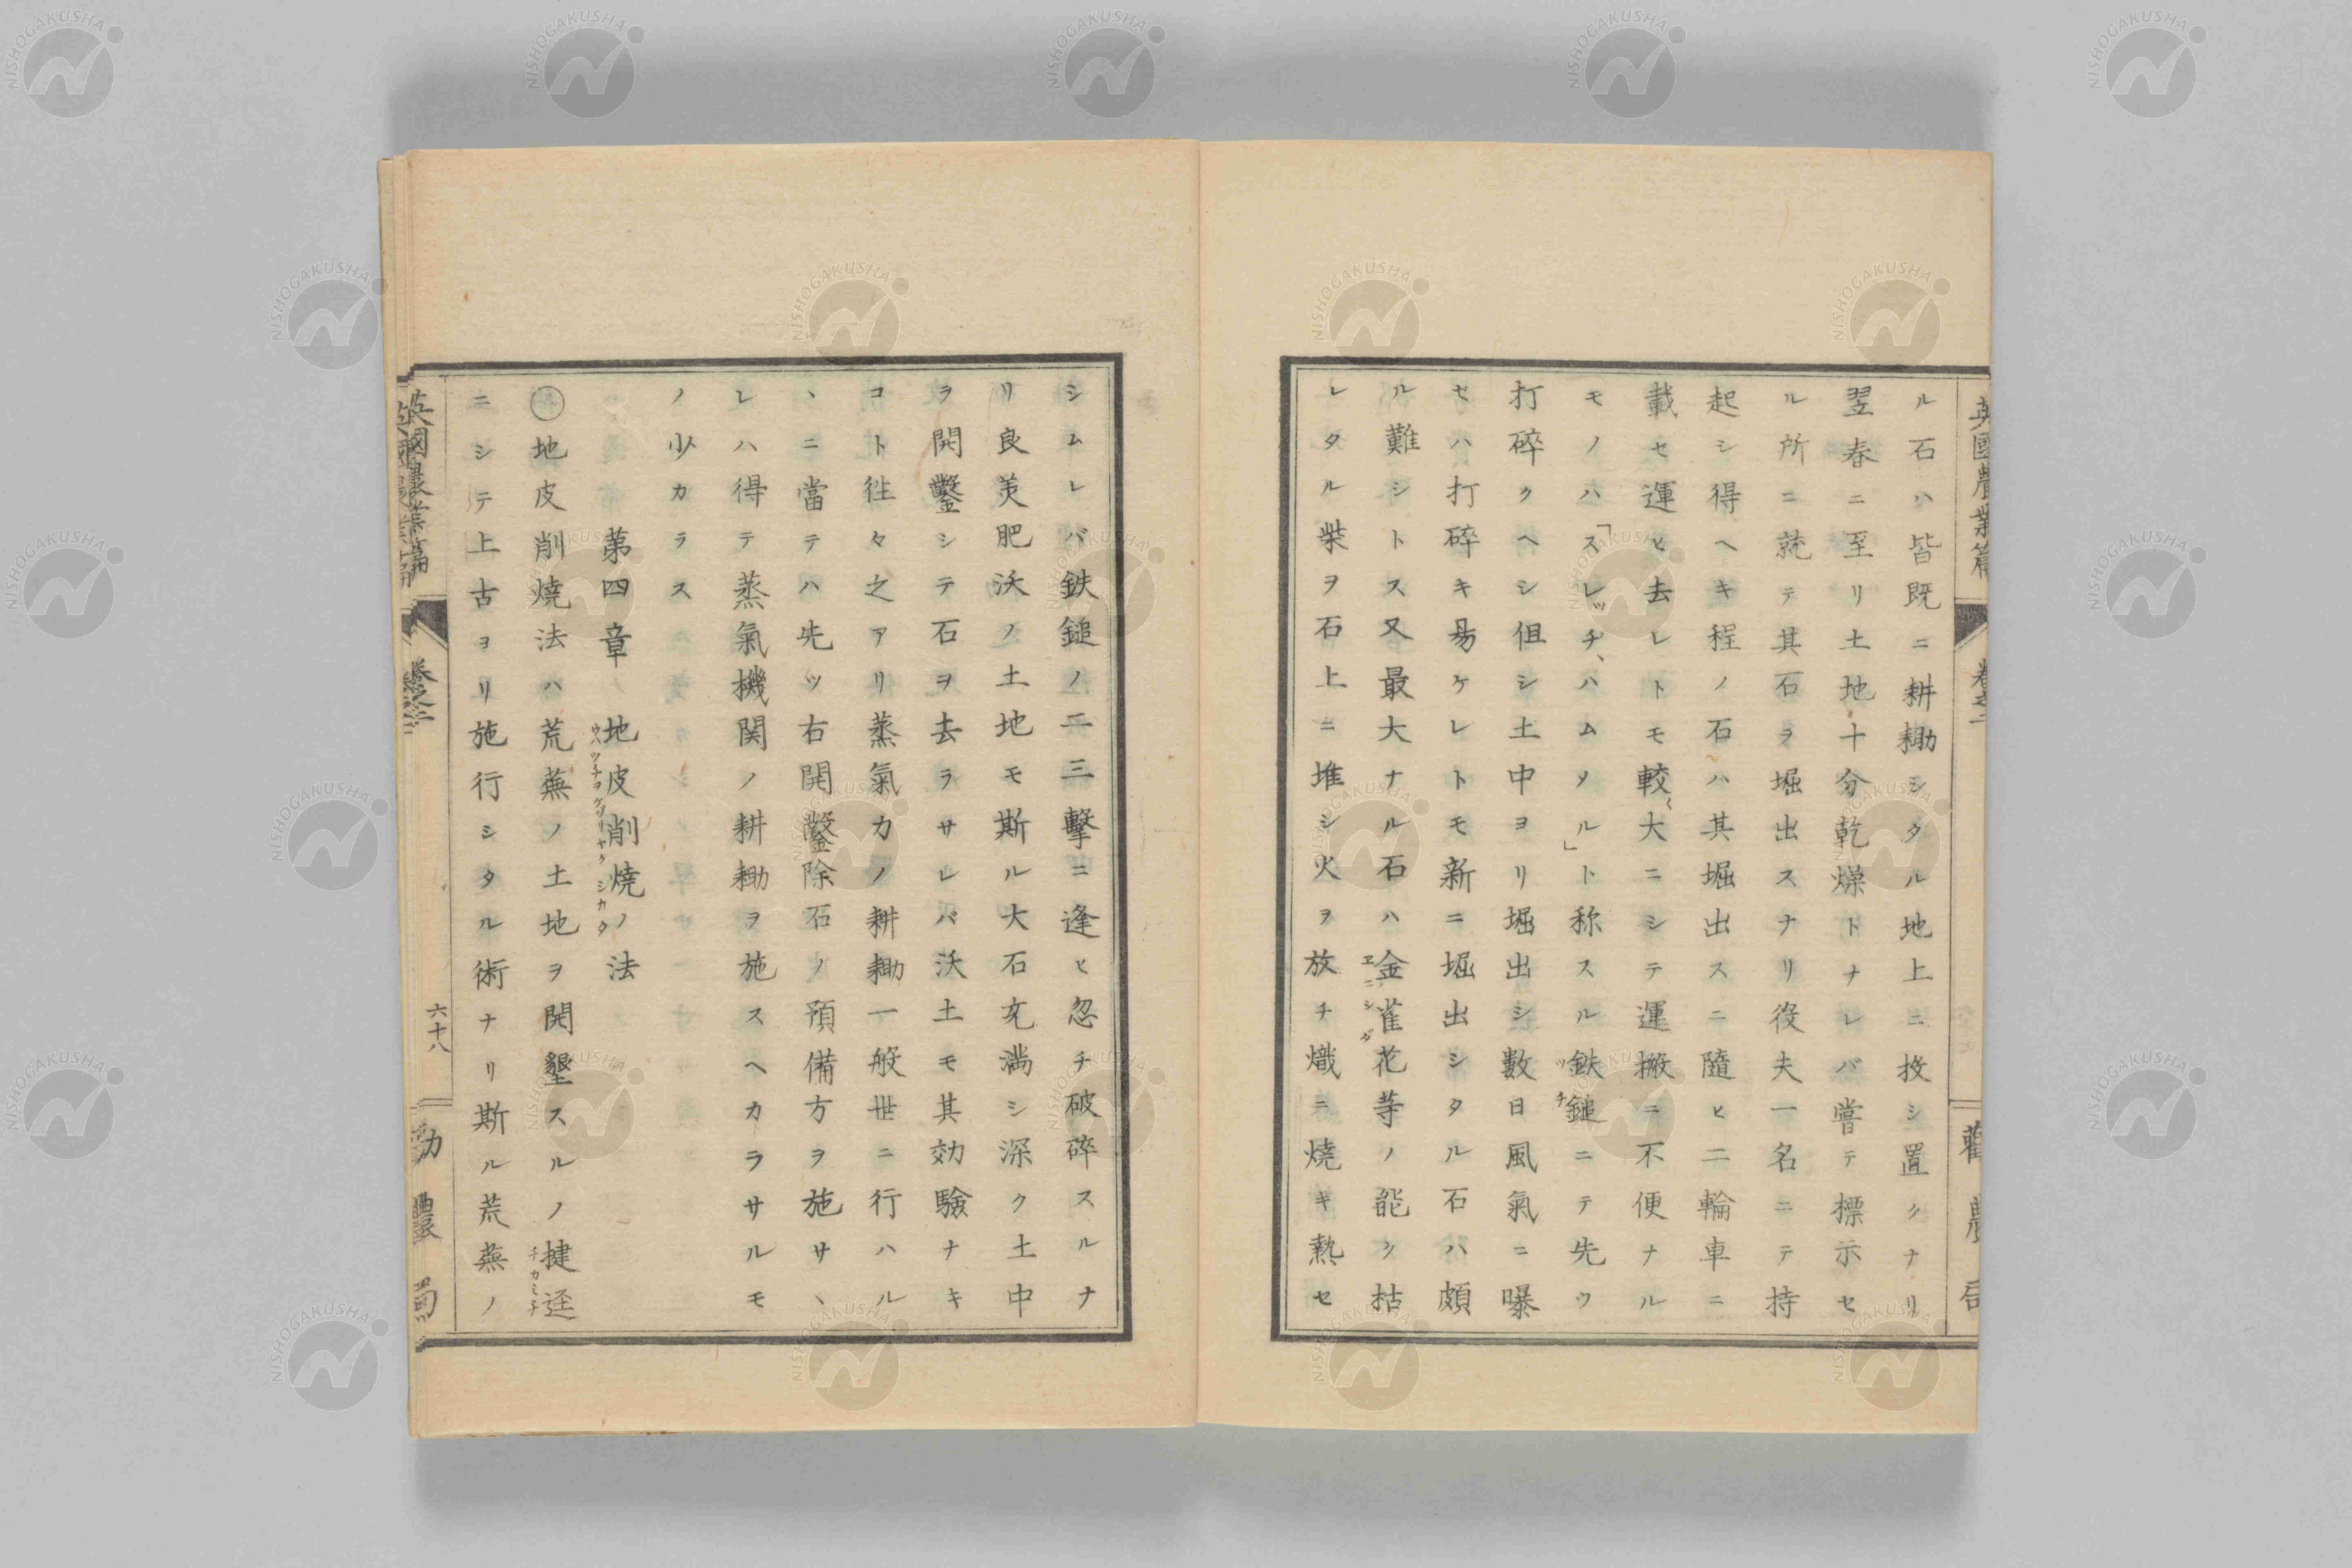 英國農業篇 卷之二 勸農局
ル石ハ皆既ニ耕耡シタル地上ニ投シ置クナリ
翌春ニ至リ土地十分乾燥トナレバ嘗テ標示セ
ル所ニ就テ其石ヲ堀出スナリ役夫一名ニテ持
起シ得ヘキ程ノ石ハ其堀出スニ隨ヒ二輪車ニ
載セ運ヒ去レトモ較大ニシテ運搬ニ不便ナル
モノハ「スレッヂ、ハムメル」ト称スル鉄鎚ニテ先ツ
ツチ
打碎クヘシ但シ土中ヨリ堀出シ數日風氣ニ曝
セハ打碎キ昜ケレトモ新ニ堀出シタル石ハ頗
ル難シトス又最大ナル石ハ金雀花等ノ能ク枯
エニシダ
レタル柴ヲ石上ニ堆シ火ヲ放チ熾ニ燒キ熱セ
シムレバ鉄鎚ノ二三擊ニ逢ヒ忽チ破碎スルナ
リ良美肥沃ノ土地モ斯ル大石充満シ深ク土中
ヲ開鑿シテ石ヲ去ラサレバ沃土モ其効驗ナキ
コト徃々之アリ蒸氣力ノ耕耡一般世ニ行ハル
丶ニ當テハ先ツ右開鑿除石ノ預備方ヲ施サ丶
レハ得テ蒸氣機関ノ耕耡ヲ施スヘカラサルモ
ノ少カラス
第四章 地皮削燒ノ法
ウハツチヲケヅリヤクシカタ
○地皮削燒法ハ荒蕪ノ土地ヲ開墾スルノ捷逕
チカミチ
ニシテ上古ヨリ施行シタル術ナリ斯ル荒蕪ノ
英國農業篇 卷之二 六十八 勧農局